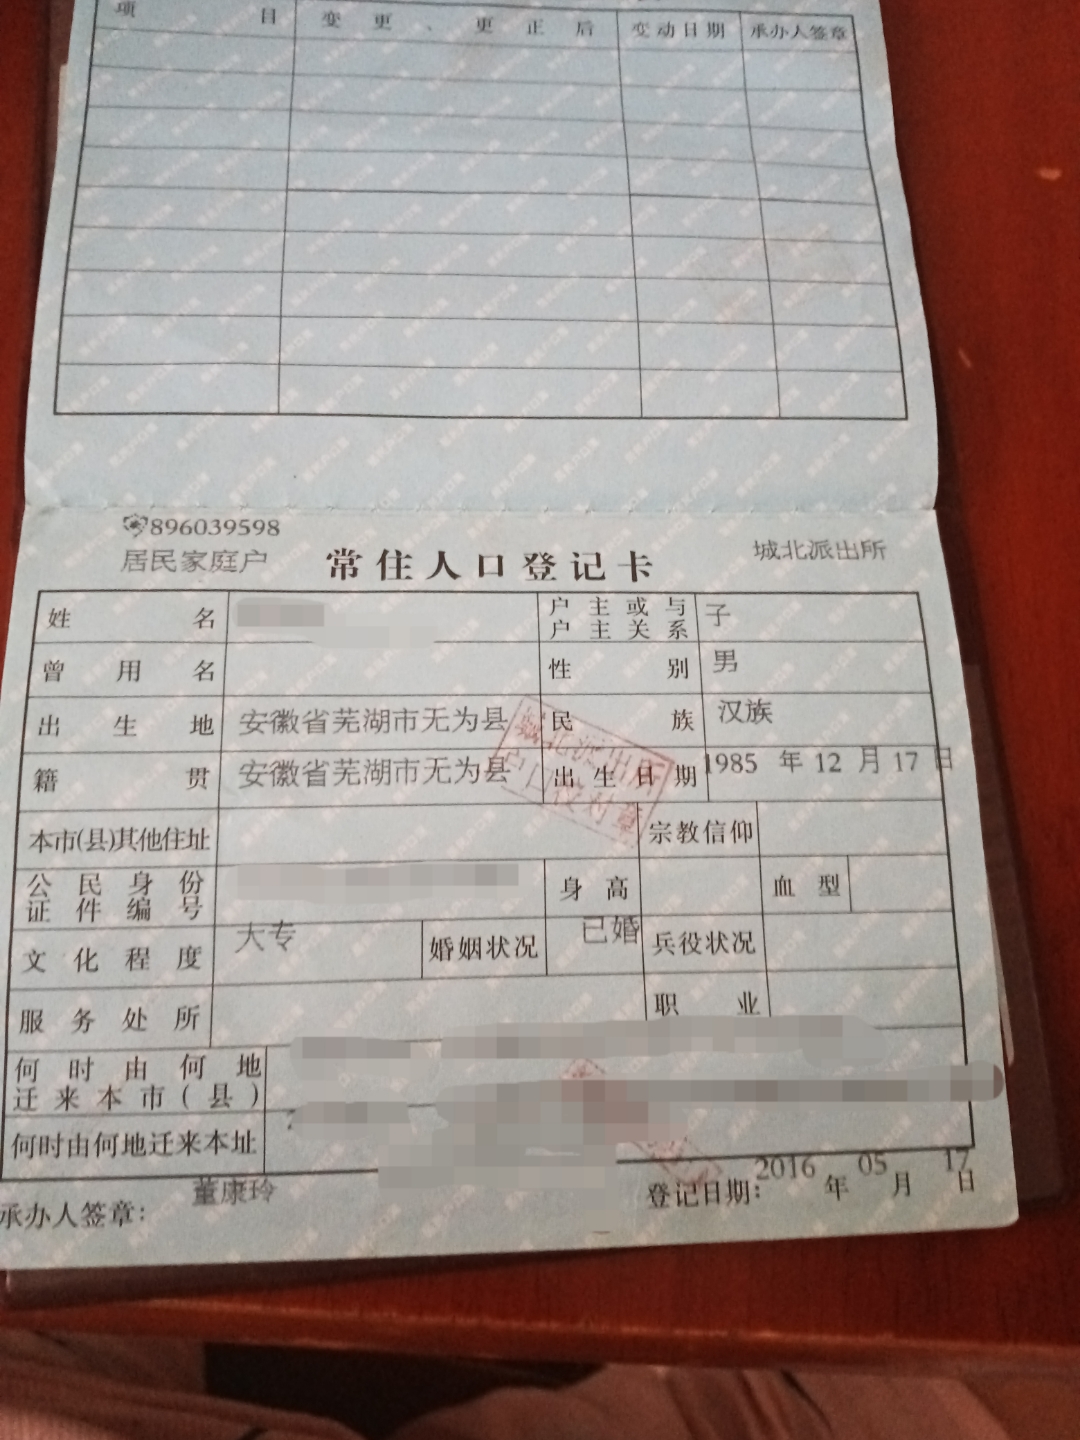 项目 变更、更正后 变动日期 承办人签章
896039598
居民家庭户 常住人口登记卡 城北派出所
姓名 户主或与户主关系 子
曾用名 性别 男
出生地 安徽省芜湖市无为县 民族 汉族
籍贯 安徽省芜湖市无为县 出生日期 1985 年 12 月 17 日
本市(县)其他住址 宗教信仰
公民身份证件编号 身高 血型
文化程度 大专 婚姻状况 已婚 兵役状况
服务处所 职业
何时由何地迁来本市(县)
何时由何地迁来本址
承办人签章: 董康玲 登记日期: 2016 年 05 月 17 日
城北派出所
户口校对章